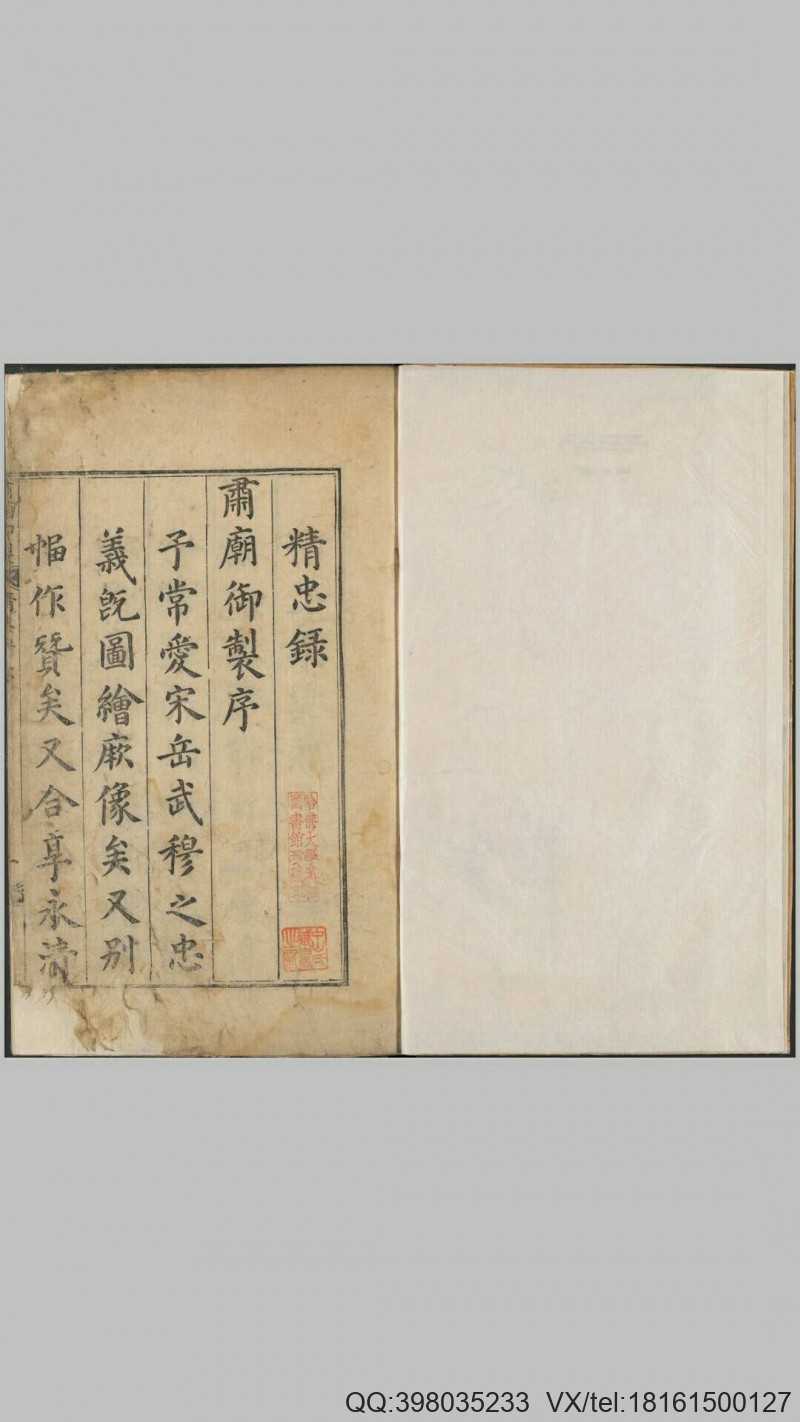 精忠録
肅廟御製序
予常愛宋岳武穆之忠
義旣圖繪厥像矣又別
幅作贊矣又合享永清
QQ:398035233 VX/tel:18161500127